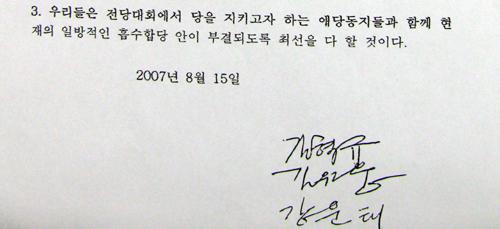 3. 우리들은 전당대회에서 당을 지키고자 하는 애당동지들과 함께 현
재의 일방적인 흡수합당 안이 부결되도록 최선을 다 할 것이다.
2007년 8월 15일
김혁규
김원웅
강운태